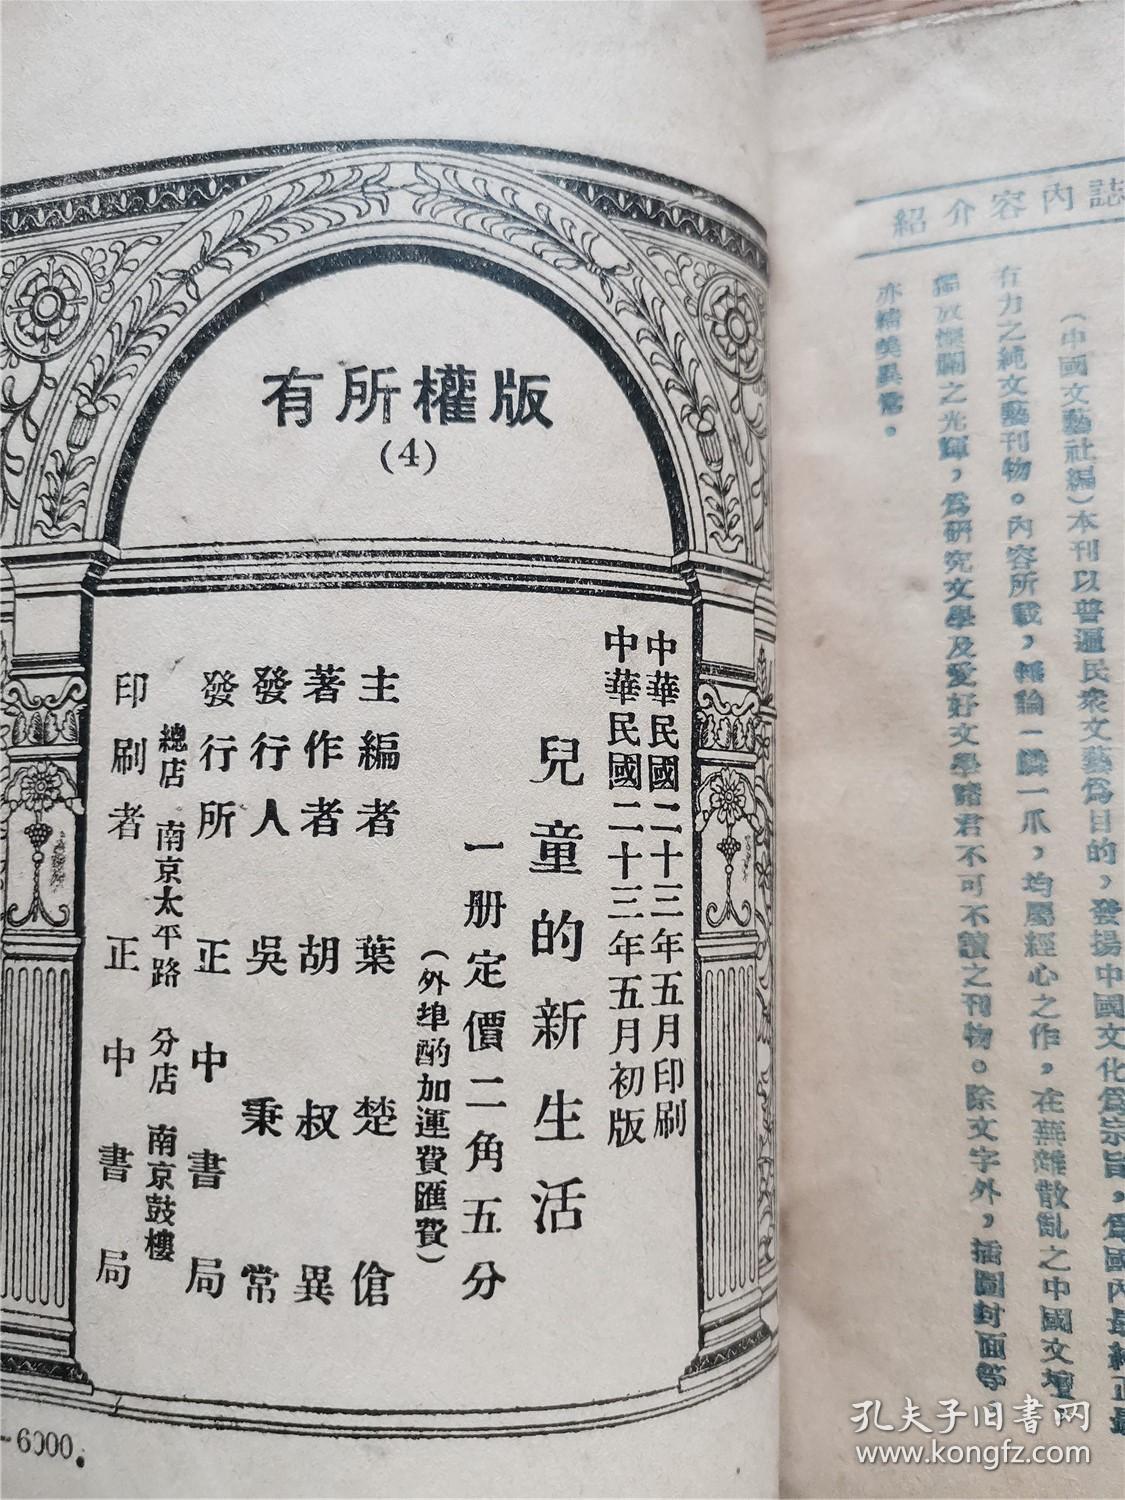 版權所有
(4)
中華民國二十三年五月印刷
中華民國二十三年五月初版
兒童的新生活
一册定價二角五分
（外埠酌加運費匯費）
主編者 葉楚傖
著作者 胡叔異
發行人 吳秉常
發行所 正中書局
總店 南京太平路 分店 南京鼓樓
印刷者 正中書局
-6000.
誌內容介紹
（中國文藝社編）本刊以普遍民衆文藝爲目的，發揚中國文化爲宗旨，爲國內最純正最
有力之純文藝刊物。內容所載，無論一鱗一爪，均屬經心之作，在蕪雜散亂之中國文壇，
獨放燦爛之光輝，爲研究文學及愛好文學諸君不可不讀之刊物。除文字外，插圖封面等，
亦精美異常。
孔夫子旧書网
www.kongfz.com